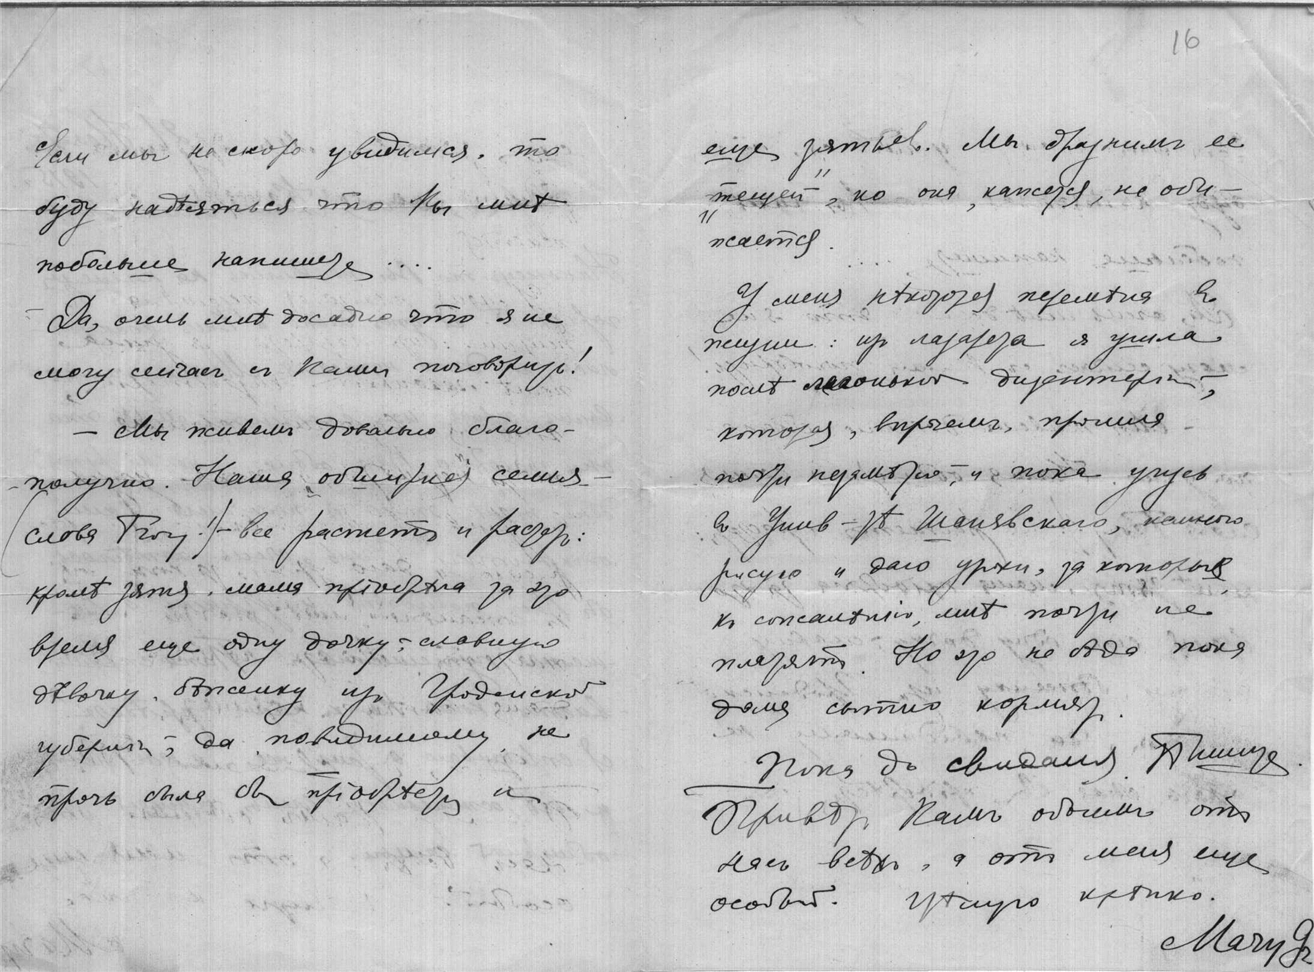 Если мы не скоро увидимся, то
буду надѣяться что Вы мнѣ
побольше напишете ....
– Да, очень мнѣ досадно что я не
могу сейчас с Вами поговорить!
– Мы живемъ довольно благо-
получно. Наша „обширная“ семья –
(слова          !) – все растетъ и растетъ:
кромѣ зятя, мама пріобрѣла за это
время еще одну дочку; – славную
дѣвочку, бѣженку изъ Гродненской
губерніи; да повидимому не
прочь была бы пріобрѣсти и
16
еще зятьев. Мы дразнимъ ее
„тещей“, но она, кажется, не оби-
жается.
У меня нѣкоторая перемѣна въ
жизни: изъ лазарета я ушла
послѣ          дизентеріи,
которая, впрочемъ, прошла
почти незамѣтно и пока учусь
въ Унив-тѣ Шанявскаго, немного
рисую и даю уроки, за которые
къ сожалѣнію, мнѣ почти не
платятъ. Но это не бѣда пока
дома сытно кормятъ.
Пока до свиданья. Пишите.
Привѣтъ Вамъ обоимъ отъ
насъ всѣхъ, а отъ меня еще
особый. Цѣлую крѣпко.